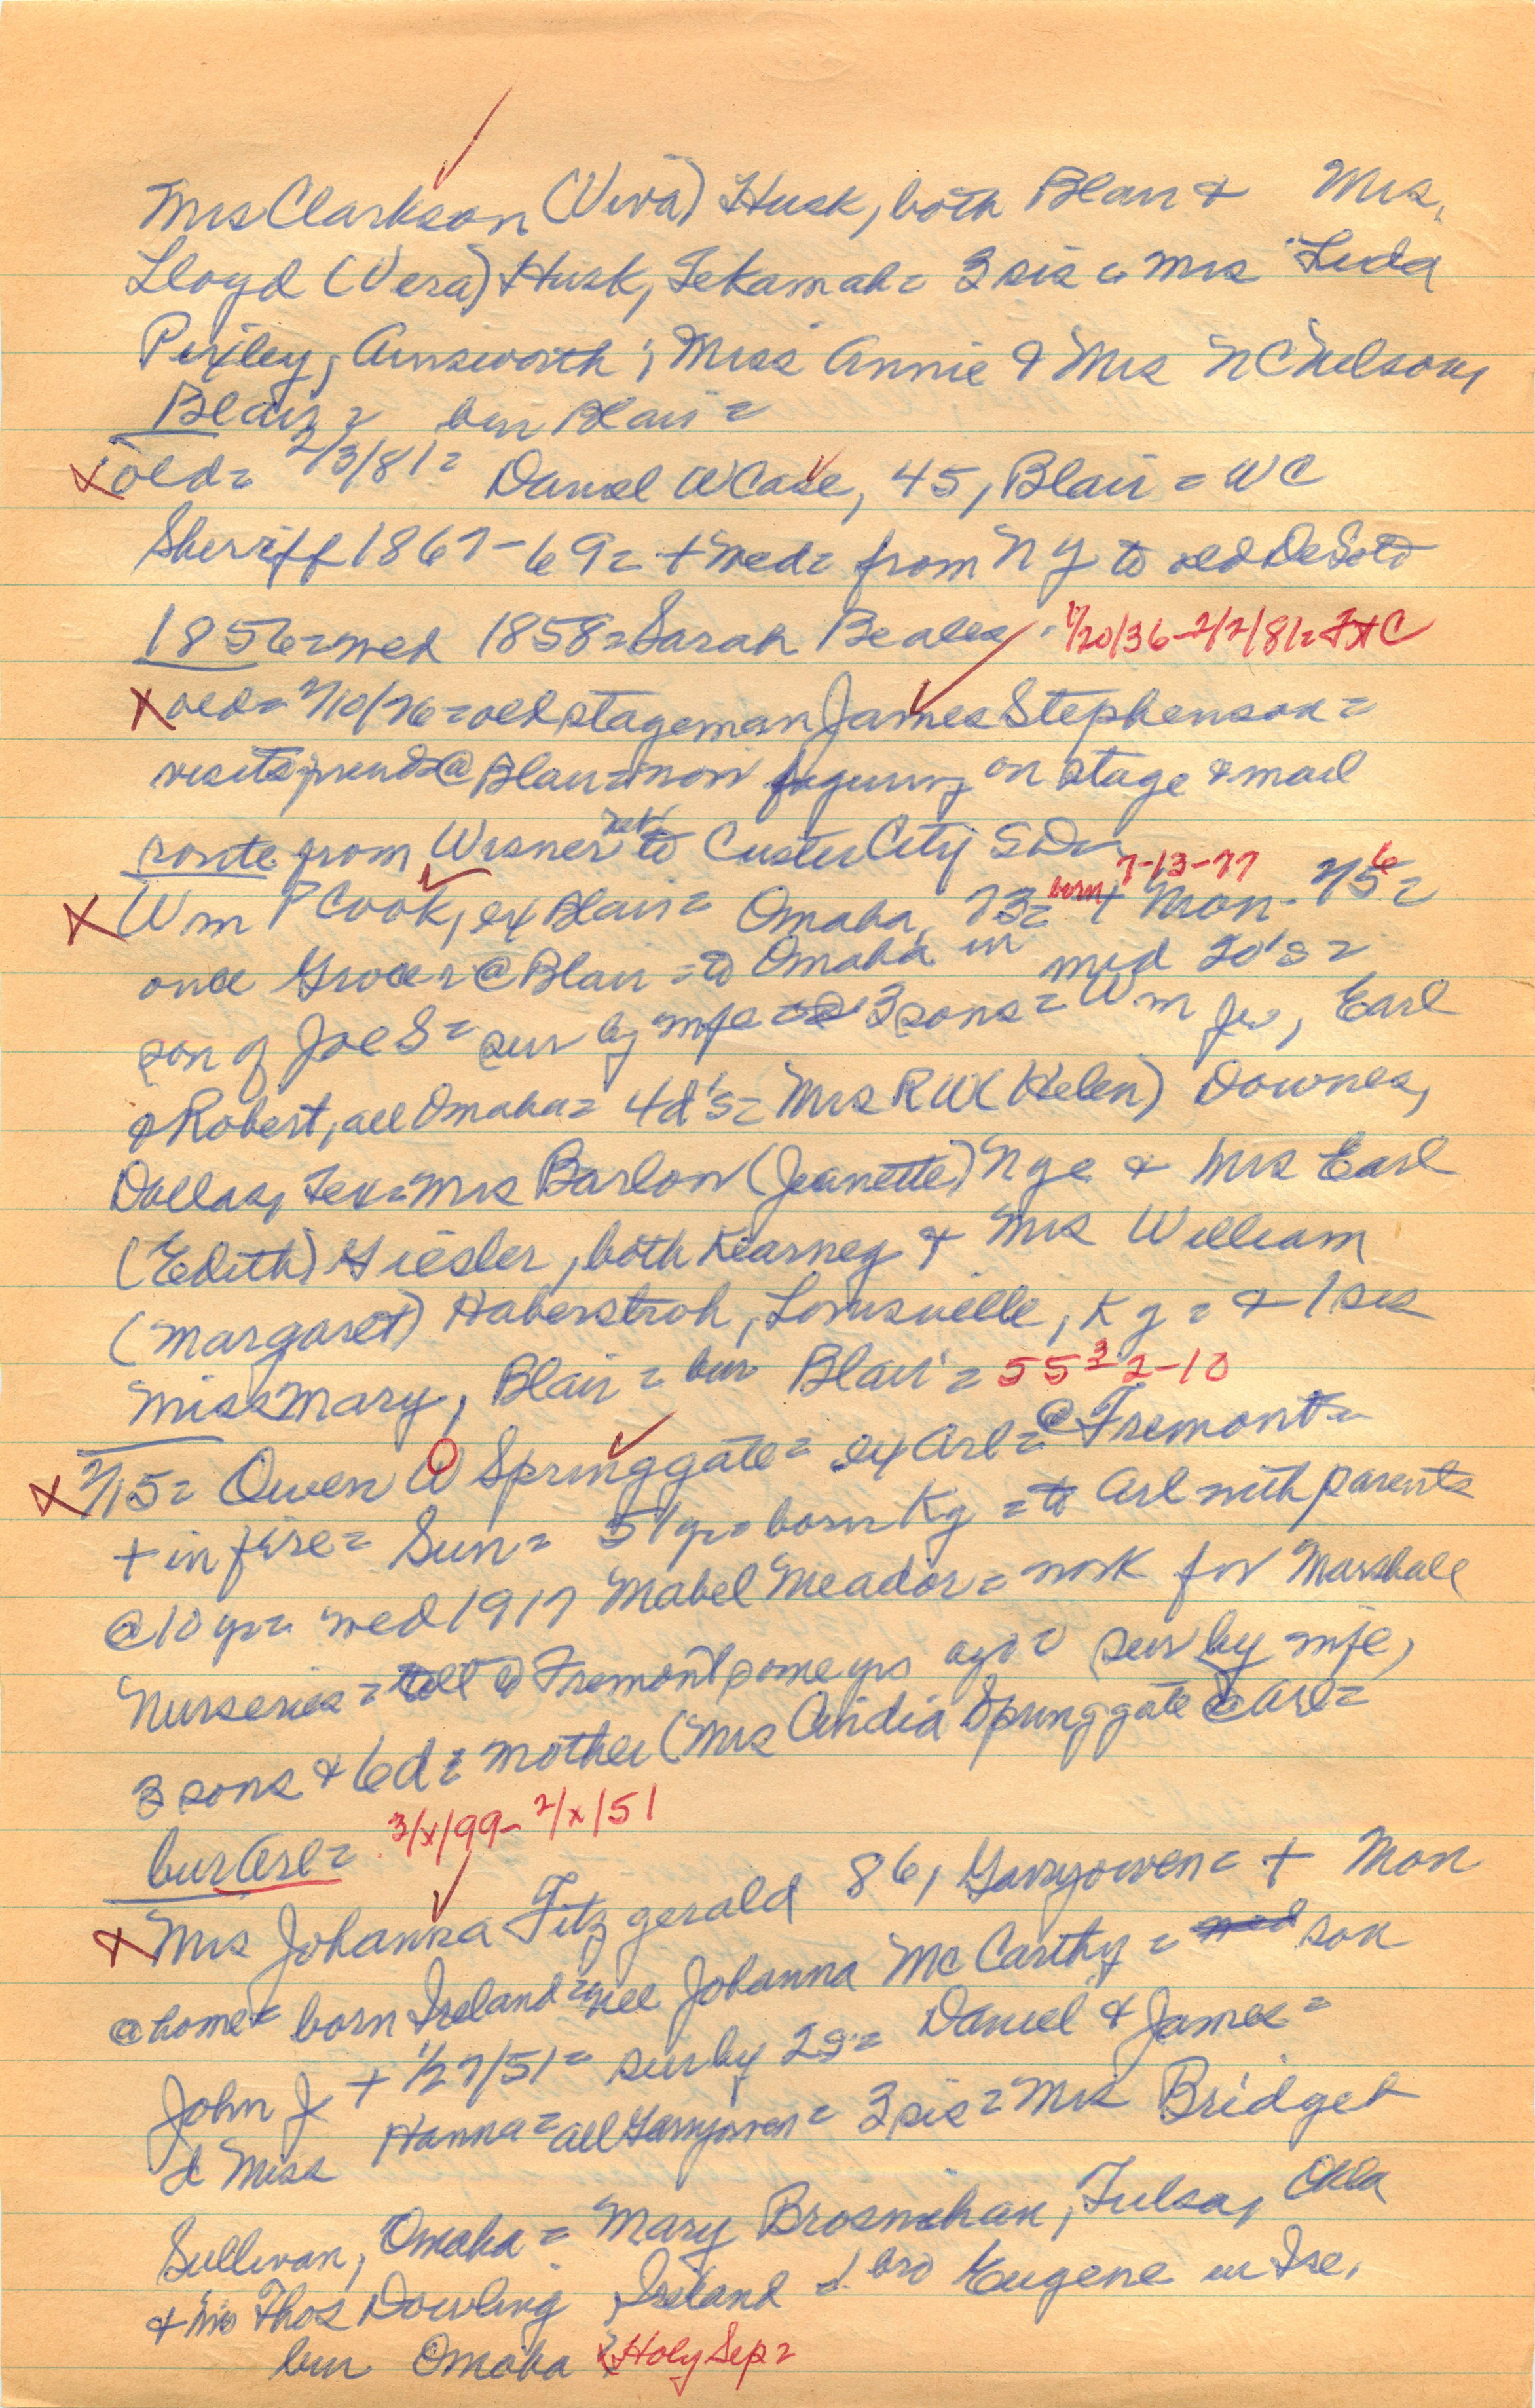 Mrs Clarkson (Viva) Husk, both Blair & Mrs.
Lloyd (Vera) Husk, Tekamah = 3 sis = Mrs Leda
Pexley, Ainsworth; Miss Annie & Mrs N C Nelson,
Blair = bur Blair =
X old = 2/3/81 = Daniel W Case, 45, Blair = WC
Sheriff 1867-69 = + Wed = from N Y to old DeSoto
1856 = wed 1858 = Sarah Beales 1/20/36-2/2/81 =
X old = 2/10/76 = old stageman James Stephenson =
visits friends @ Blair = now figuring on stage & mail
route from Wisner Neb to Custer City S D =
X Wm P Cook, ex Blair = Omaha, 73 = born 7-13-77 + Mon - 2/5 = 6
once Grocer @ Blair = to Omaha in mid 20's =
son of Joe S = sur by wife = 3 sons = Wm Jr, Earl
& Robert, all Omaha = 4 d's = Mrs R W (Helen) Downes,
Dallas, Tex = Mrs Barlow (Jeanette) Nye & Mrs Earl
(Edith) Giesler, both Kearney & Mrs William
(Margaret) Haberstroh, Louisville, Ky = & 1 sis
Miss Mary, Blair = bur Blair = 55 3 2-10
X 2/15 = Owen W O Springgate = ex Arl = @ Fremont =
+ in fire = Sun = 51 yr = born Ky = to Arl with parents
@ 10 yr = wed 1917 Mabel Meador = work for Marshall
Nurseries = to Fremont some yrs ago = sur by wife,
3 sons & 6 d = mother (Mrs Cindia Springgate @ Arl =
bur Arl = 3/x/99 - 2/x/51
X Mrs Johanna Fitzgerald 86, Garryowen = + Mon
@ home = born Ireland = nee Johanna McCarthy = son
John J + 1/27/51 = sur by 2 s = Daniel & James =
& Miss Hanna = all Garryowen = 3 sis = Mrs Bridget
Sullivan, Omaha = Mary Brosnihan, Tulsa, Okla
& Mrs Thos Dowling, Ireland & 1 bro Eugene in Ire.
bur Omaha (Holy Sep =